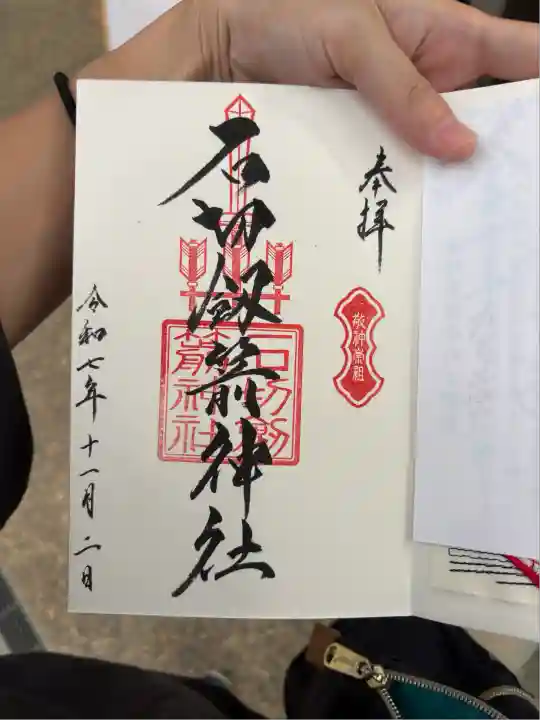 奉拝
敬神崇祖
石切劔箭神社
石切劔
箭神社
令和七年十一月二日